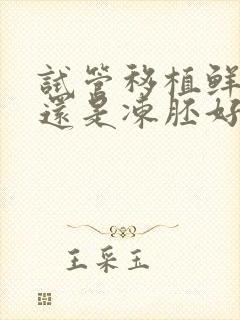 試管移植鮮
還是凍胚好
王采玉